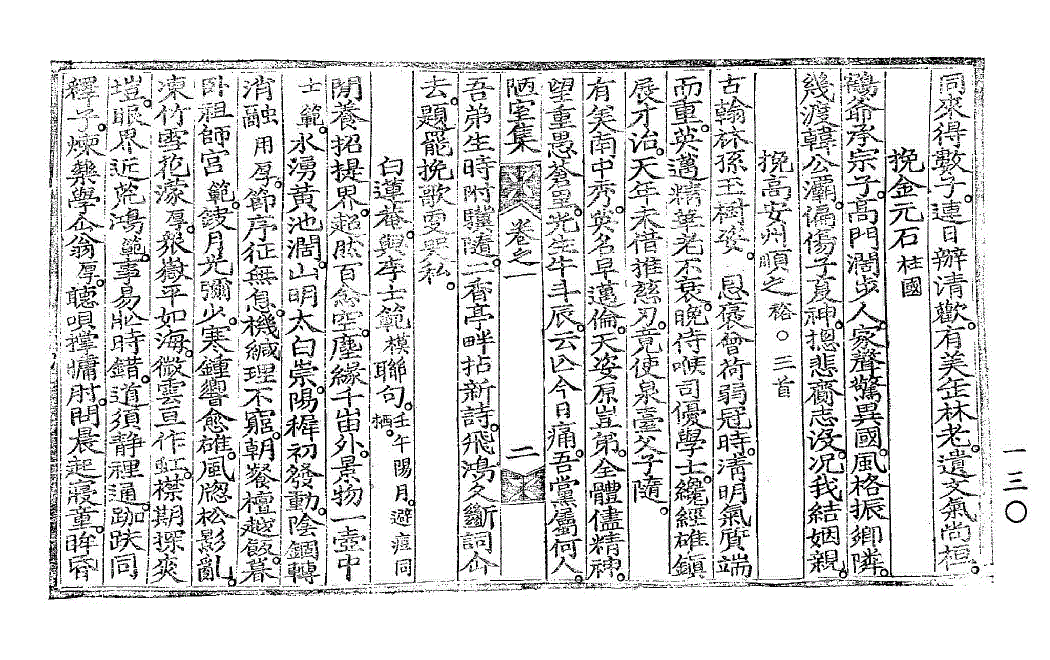 同來得數子連日辦清歡有美金林老遺文氣尚桓
挽金元石 柱國
鶴爺承宗子高門濶步人家聲驚異國風格振鄕隣
幾渡韓公灞偏傷子夏神摠悲齎志沒况我結姻親
挽高安州順之 裕○三首
古翰林孫玉樹姿 恩褒曾荷弱冠時淸明氣質端
而重英邁精華老不衰晩侍喉司優學士纔經雄鎭
展才治天年未借推慈刃竟使泉臺父子隨
有矣南中秀英名早邁倫天姿原豈弟全體儘精神
望重愚蒼里光生牛斗辰云亡今日痛吾黨屬何人
陋室集 卷之一 二
吾弟生時附驥隨一香亭畔拈新詩飛鴻久斷詞仚
去題罷挽歌雯哭私
白蓮菴與李士範 模 聯句 壬午陽月避痘同栖
閒養招提界超然百念空塵緣千宙外景物一壺中
士範水湧黃池濶山明太白崇陽穉初發動陰錮轉
消融 用厚節序征無息機緘理不窮朝餐檀越飯暮
臥祖師宮 範鏤月光彌少寒鍾響愈雄風窓松影亂
凍竹雪花濛 厚衆嶽平如海微雲亘作虹襟期探爽
塏眼界近荒鴻 範事易歧時錯道須靜裡通跏趺同
釋子煉藥學仚翁 厚聽唄撑慵肘問晨起寢童眸昏
一三〇